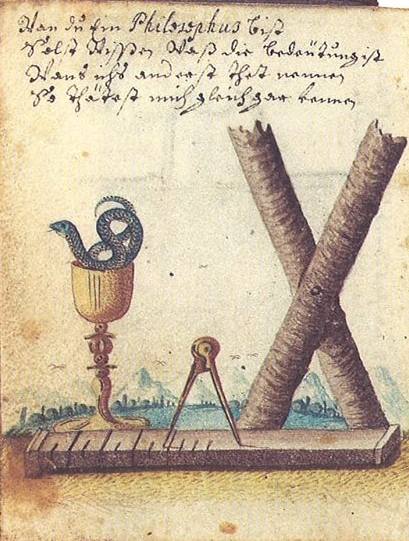 Wan du Ein Philosophus bist
Solst Wissen Waß die bedeutung ist
Wans ichs anderst thet nennen
So thätest mich gleich gar kennen